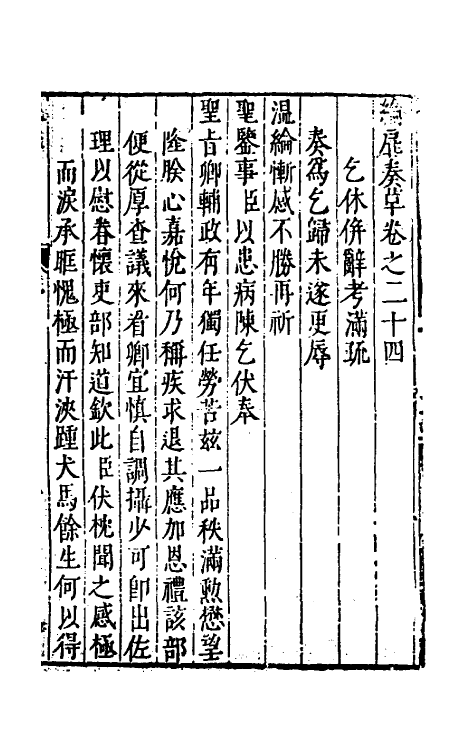 綸扉奏草卷之二十四
乞休併辭考滿疏
奏爲乞歸未遂更辱
溫綸慚感不勝再祈
聖鑒事臣以患病陳乞伏奉
聖旨卿輔政有年獨任勞苦兹一品秩滿勲懋望
隆朕心嘉悅何乃稱疾求退其應加恩禮該部
便從厚查議來看卿宜慎自調攝少可卽出佐
理以慰眷懷吏部知道欽此臣伏枕聞之感極
而淚承眶愧極而汗浹踵犬馬餘生何以得